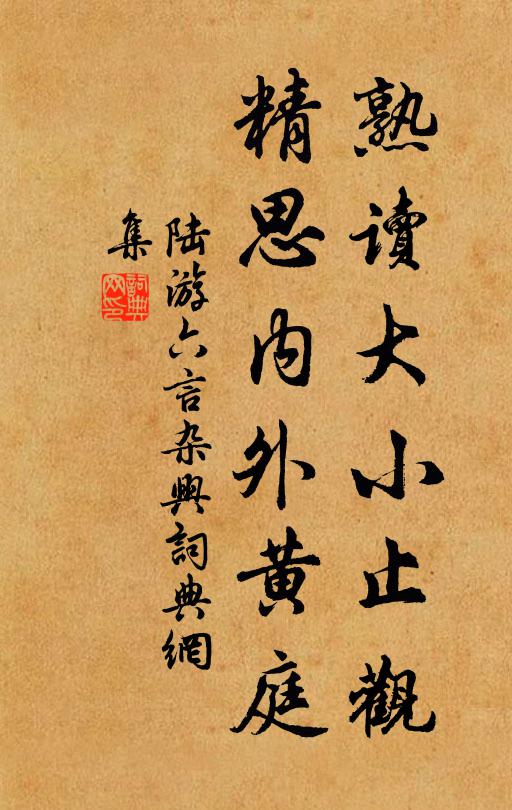 熟讀大小止觀
精思内外黄庭
陆游六言杂興詞典網
集
詞典
网印